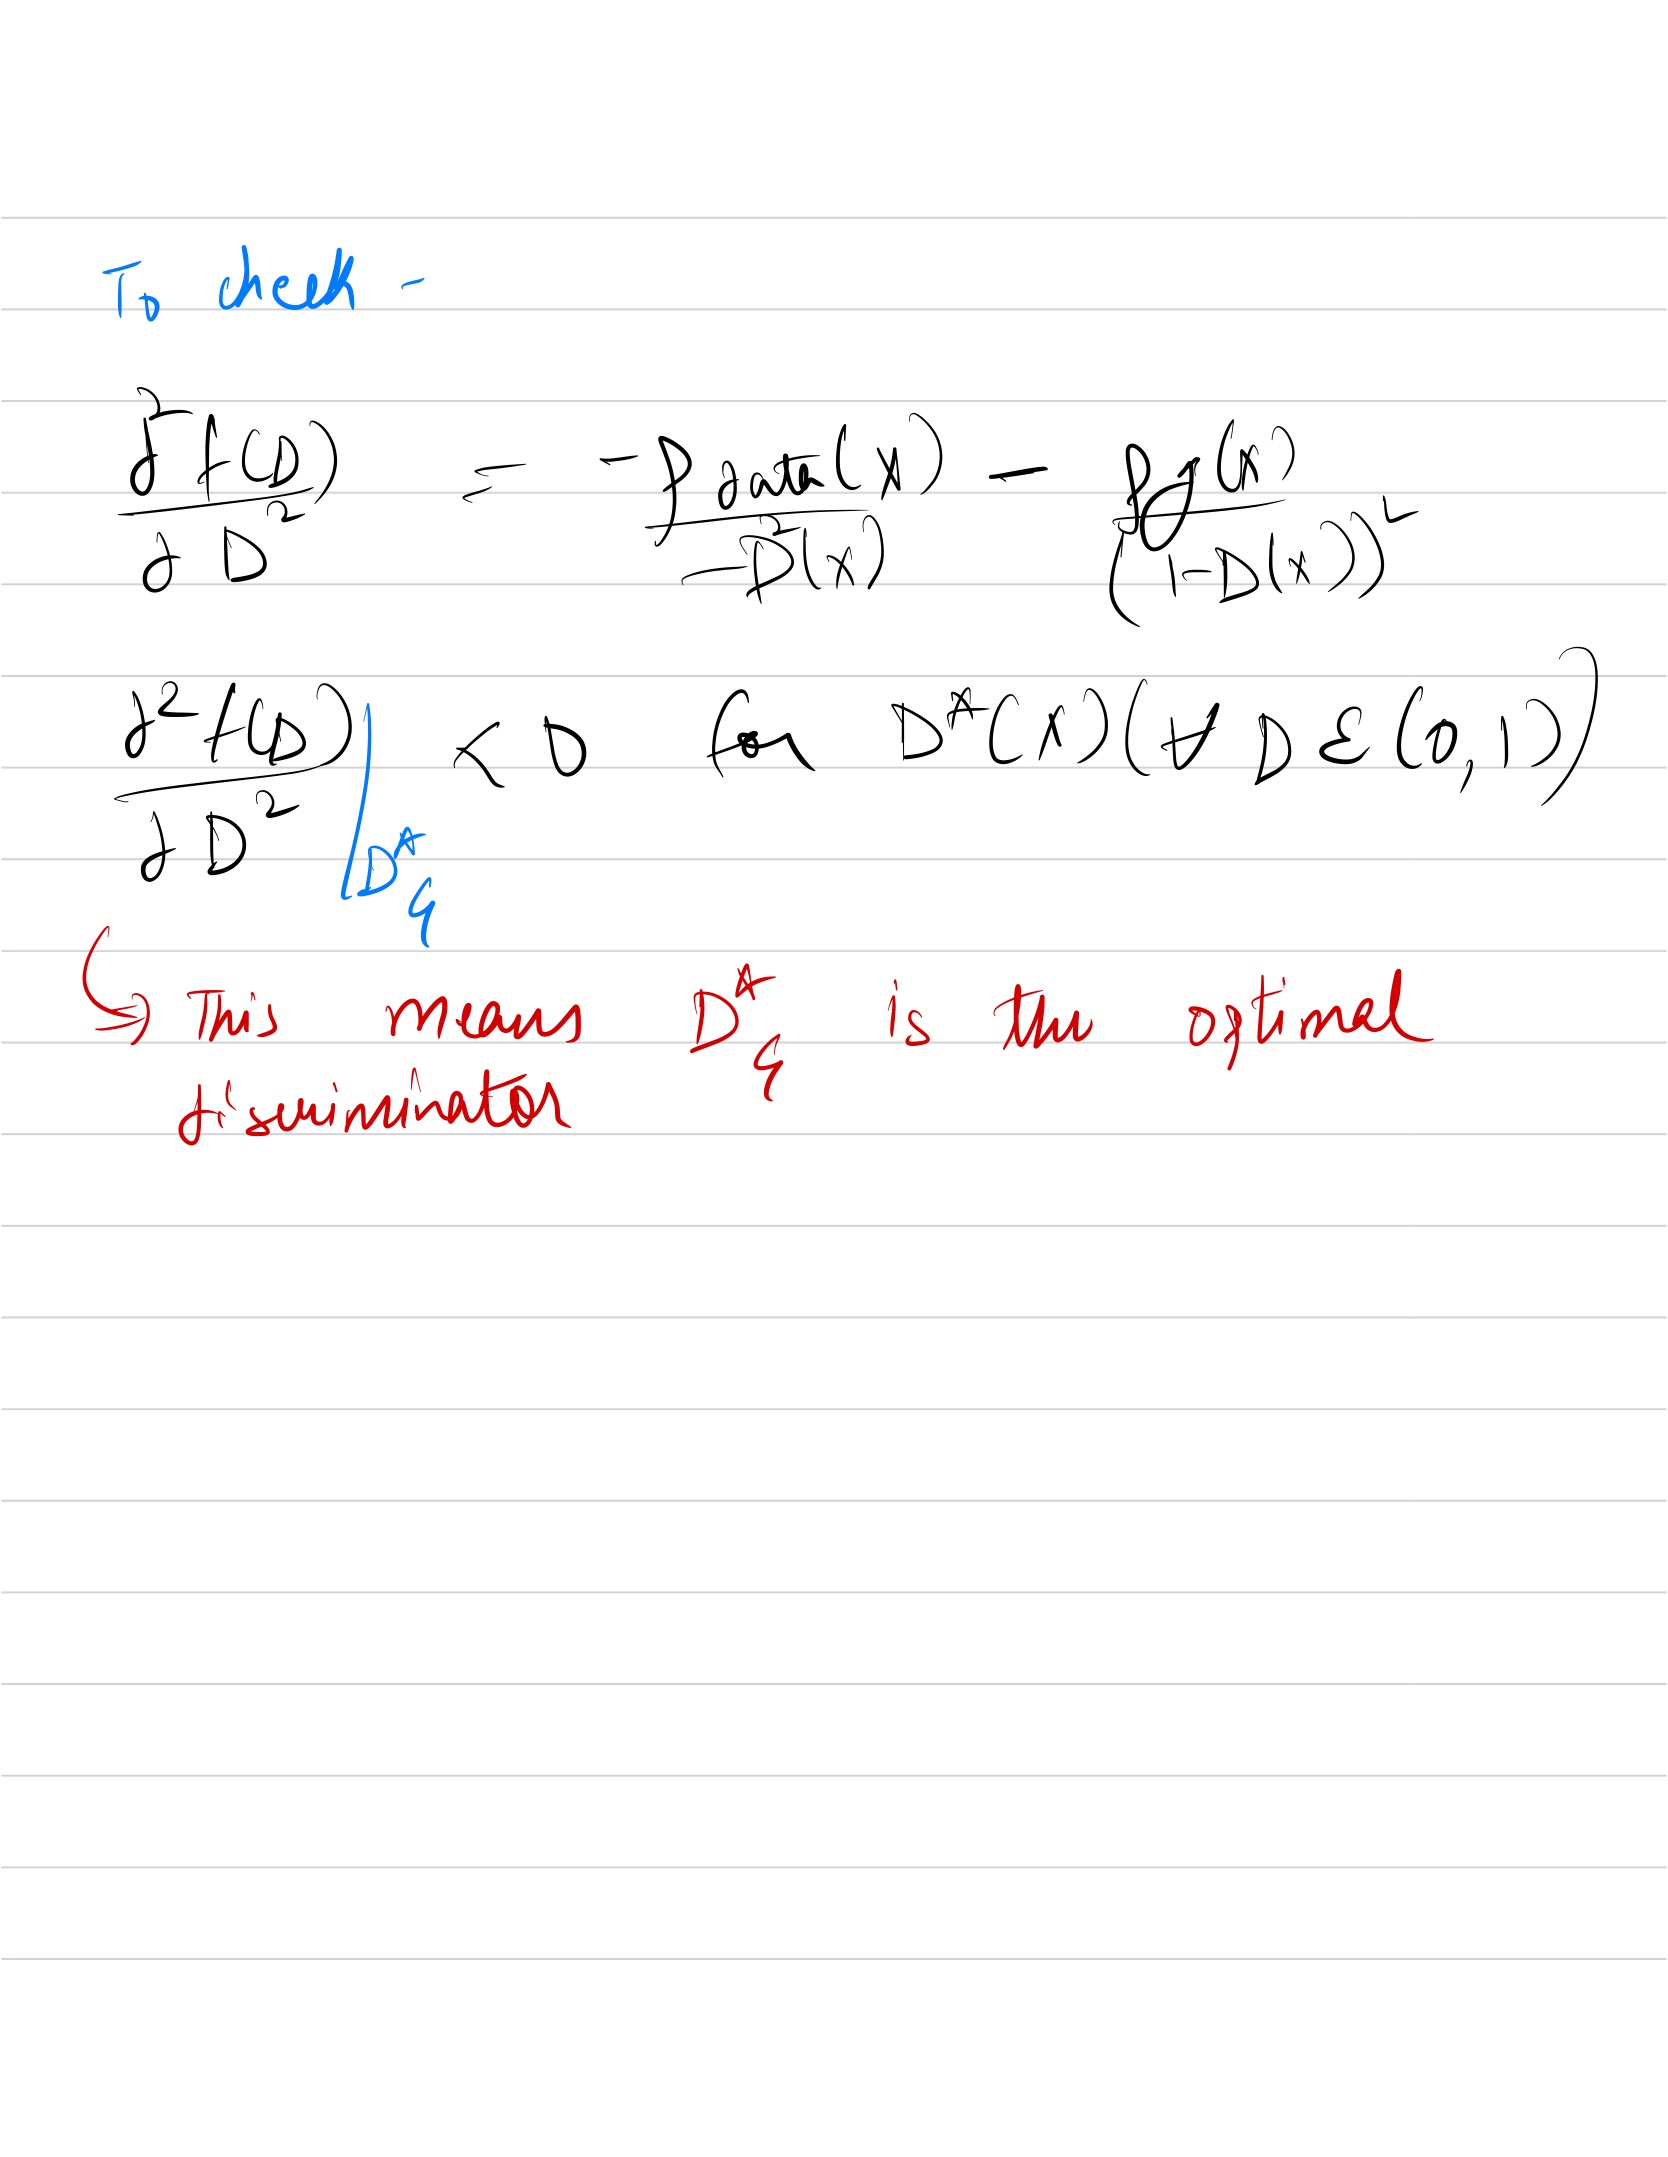 To check -
∂²f(D)/∂D² = -Pdata(x)/-D²(x) - pg(x)/(1-D(x))²
∂²f(D)/∂D² |D*G < 0 for D*(x) (∀ D ε (0,1))
↳ This means D*G is the optimal
discriminator